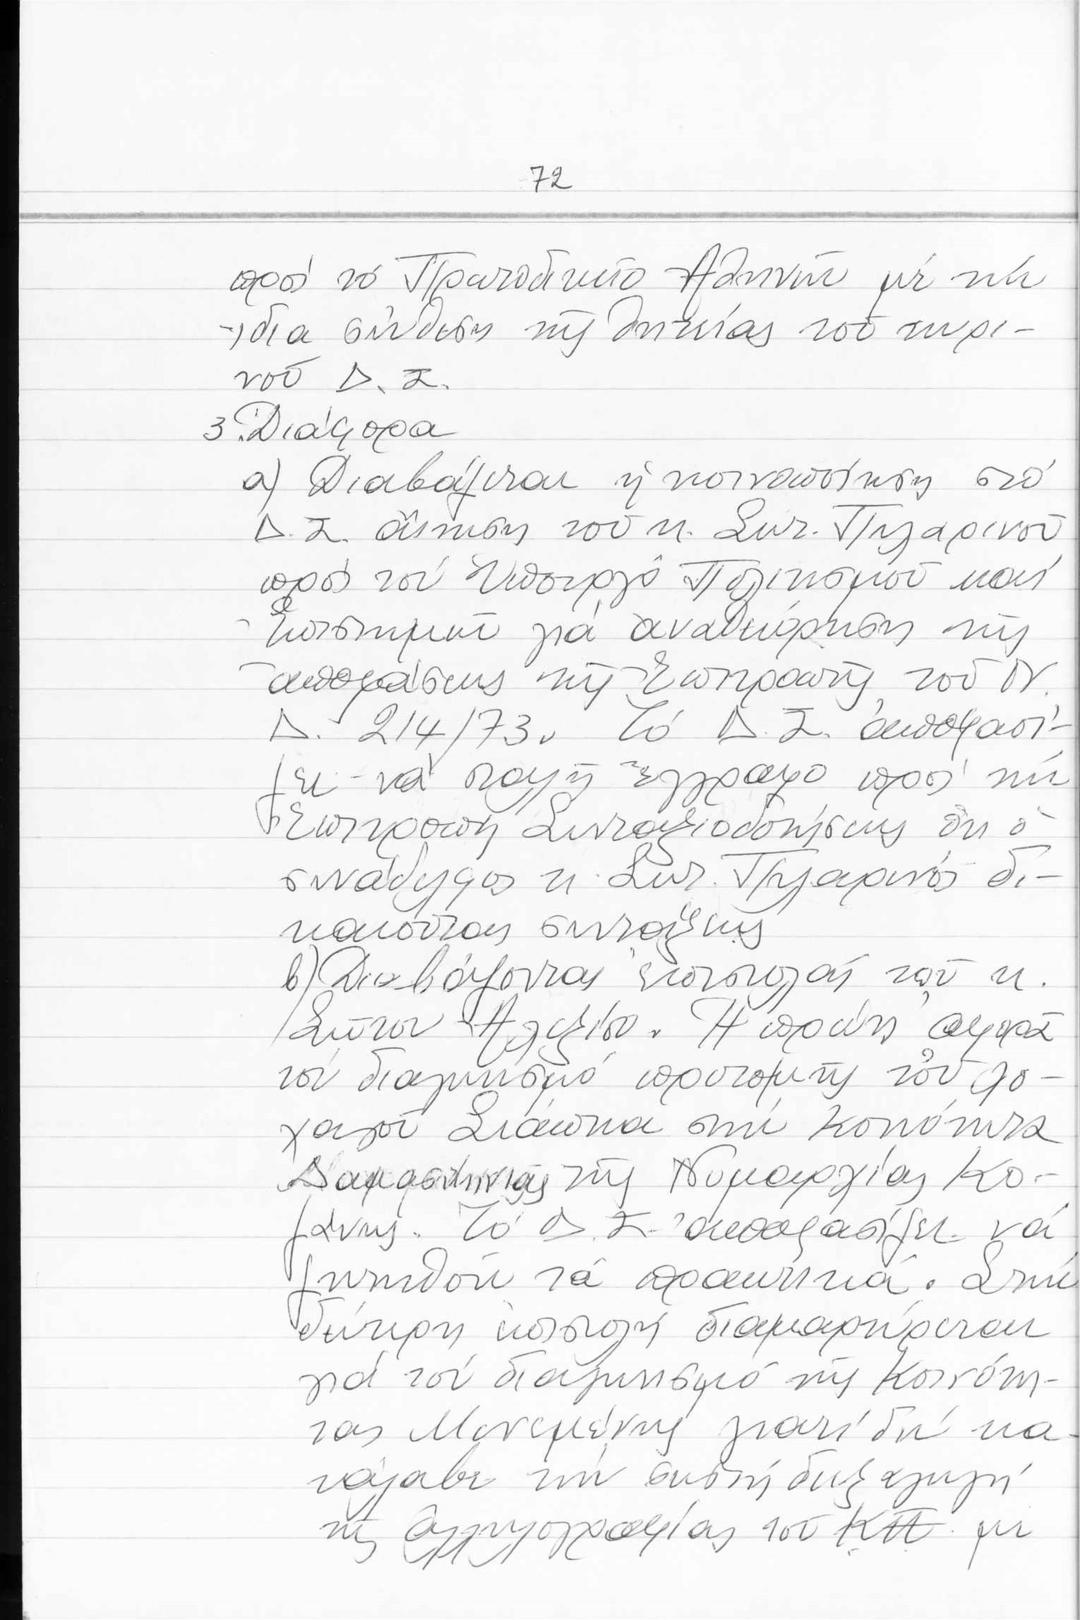 72
πρός τό Πρωτοδικεῖο Ἀθηνῶν μέ τήν
ἴδια σύνθεση τῆς θητείας τοῦ τωρι-
νοῦ Δ.Σ.
3. Διάφορα
α) Διαβάζεται ἡ κοινοποίηση στό
Δ.Σ. αἴτηση τοῦ κ. Σωτ. Πυλαρινοῦ
πρός τόν Ὑπουργό Πολιτισμοῦ καί
Ἐπιστημῶν γιά ἀναθεώρηση τῆς
ἀποφάσεως τῆς Ἐπιτροπῆς τοῦ Ν.
Δ. 214/73. Τό Δ.Σ. ἀποφασί-
ζει νά σταλῆ ἔγγραφο πρός τήν
Ἐπιτροπή Συνταξιοδοτήσεως ὅτι ὁ
συνάδελφος κ. Σωτ. Πυλαρινός δι-
καιοῦται συντάξεως
β) Διαβάζονται ἐπιστολές τοῦ κ.
Σώτου Ἀλεξίου. Ἡ πρώτη ἀφορᾶ
τόν διαγωνισμό προτομῆς τοῦ λο-
χαγοῦ Σιάπκα στήν Κοινότητα
Δαμασκηνιᾶς τῆς Νομαρχίας Κο-
ζάνης. Τό Δ.Σ. ἀποφασίζει νά
ζητηθοῦν τά πρακτικά. Στήν
δεύτερη ἐπιστολή διαμαρτύρεται
γιά τόν διαγωνισμό τῆς Κοινότη-
τας Μενεμένης γιατί δέν κα-
τάλαβε τήν σωστή διεξαγωγή
τῆς ἀλληλογραφίας τοῦ ΚΠ με